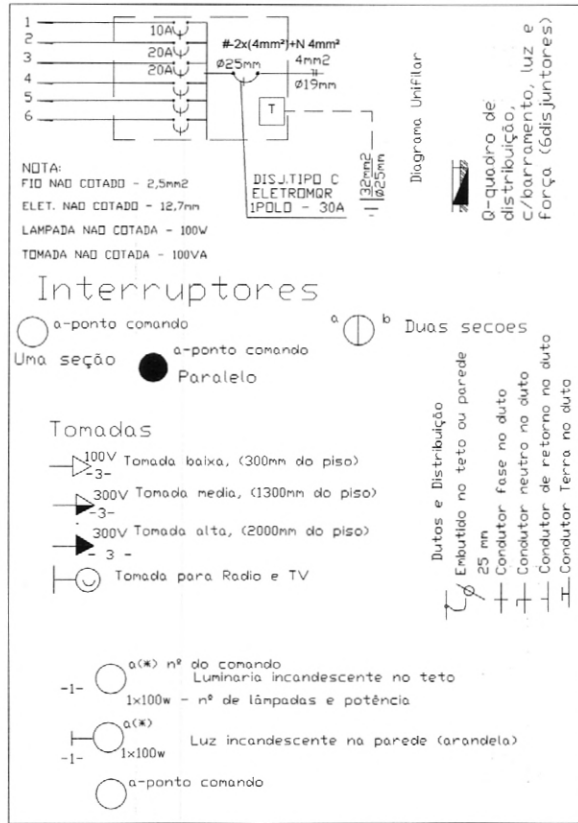 1
2
3
4
5
6
10A
20A
20A
#-2x(4mm²)+N 4mm²
Ø25mm
4mm2
Ø19mm
T
32mm2
Ø25mm
DISJ.TIPO C
ELETROMQR
1POLO - 30A
NOTA:
FIO NAO COTADO - 2,5mm2
ELET. NAO COTADO - 12,7mm
LAMPADA NAO COTADA - 100W
TOMADA NAO COTADA - 100VA
Diagrama Unifilar
Q-quadro de
distribuição,
c/barramento, luz e
força (6disjuntores)
Interruptores
a-ponto comando
Uma seção
a-ponto comando
Paralelo
a
b
Duas secoes
Tomadas
100V
-3-
Tomada baixa, (300mm do piso)
300V
-3-
Tomada media, (1300mm do piso)
300V
- 3 -
Tomada alta, (2000mm do piso)
Tomada para Radio e TV
Dutos e Distribuição
Embutido no teto ou parede
25 mm
Condutor fase no duto
Condutor neutro no duto
Condutor de retorno no duto
Condutor Terra no duto
a(*) nº do comando
Luminaria incandescente no teto
-1-
1x100w - nº de lâmpadas e potência
a(*)
Luz incandescente na parede (arandela)
-1-
1x100w
a-ponto comando